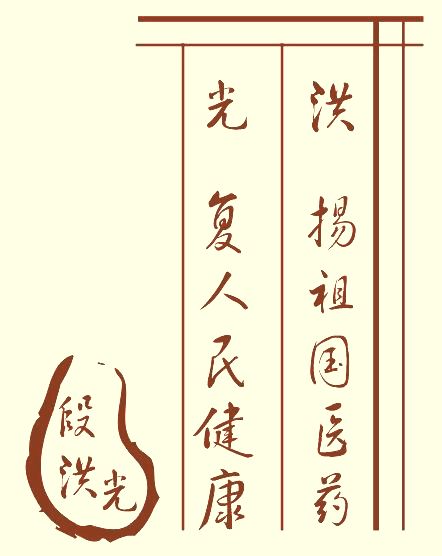 洪扬祖国医药
光复人民健康
段洪光